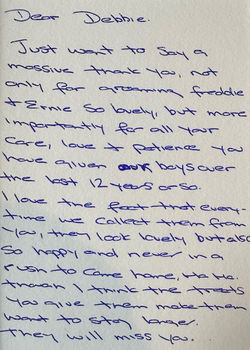 Dear Debbie.
Just want to say a
massive thank you, not
only for grooming freddie
& Ernie so lovely, but more
importantly for all your
care, love & patience you
have given our boys over
the last 12 years or so.
I love the fact that every-
time we collect them from
you, they look lovely but also
so happy and never in a
rush to come home, Ha Ha.
though I think the treats
you give them make them
want to stay longer.
They will miss you.